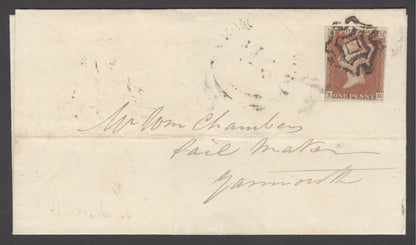 ONE PENNY
Mr Wm Chambers
Sail Maker
Yarmouth